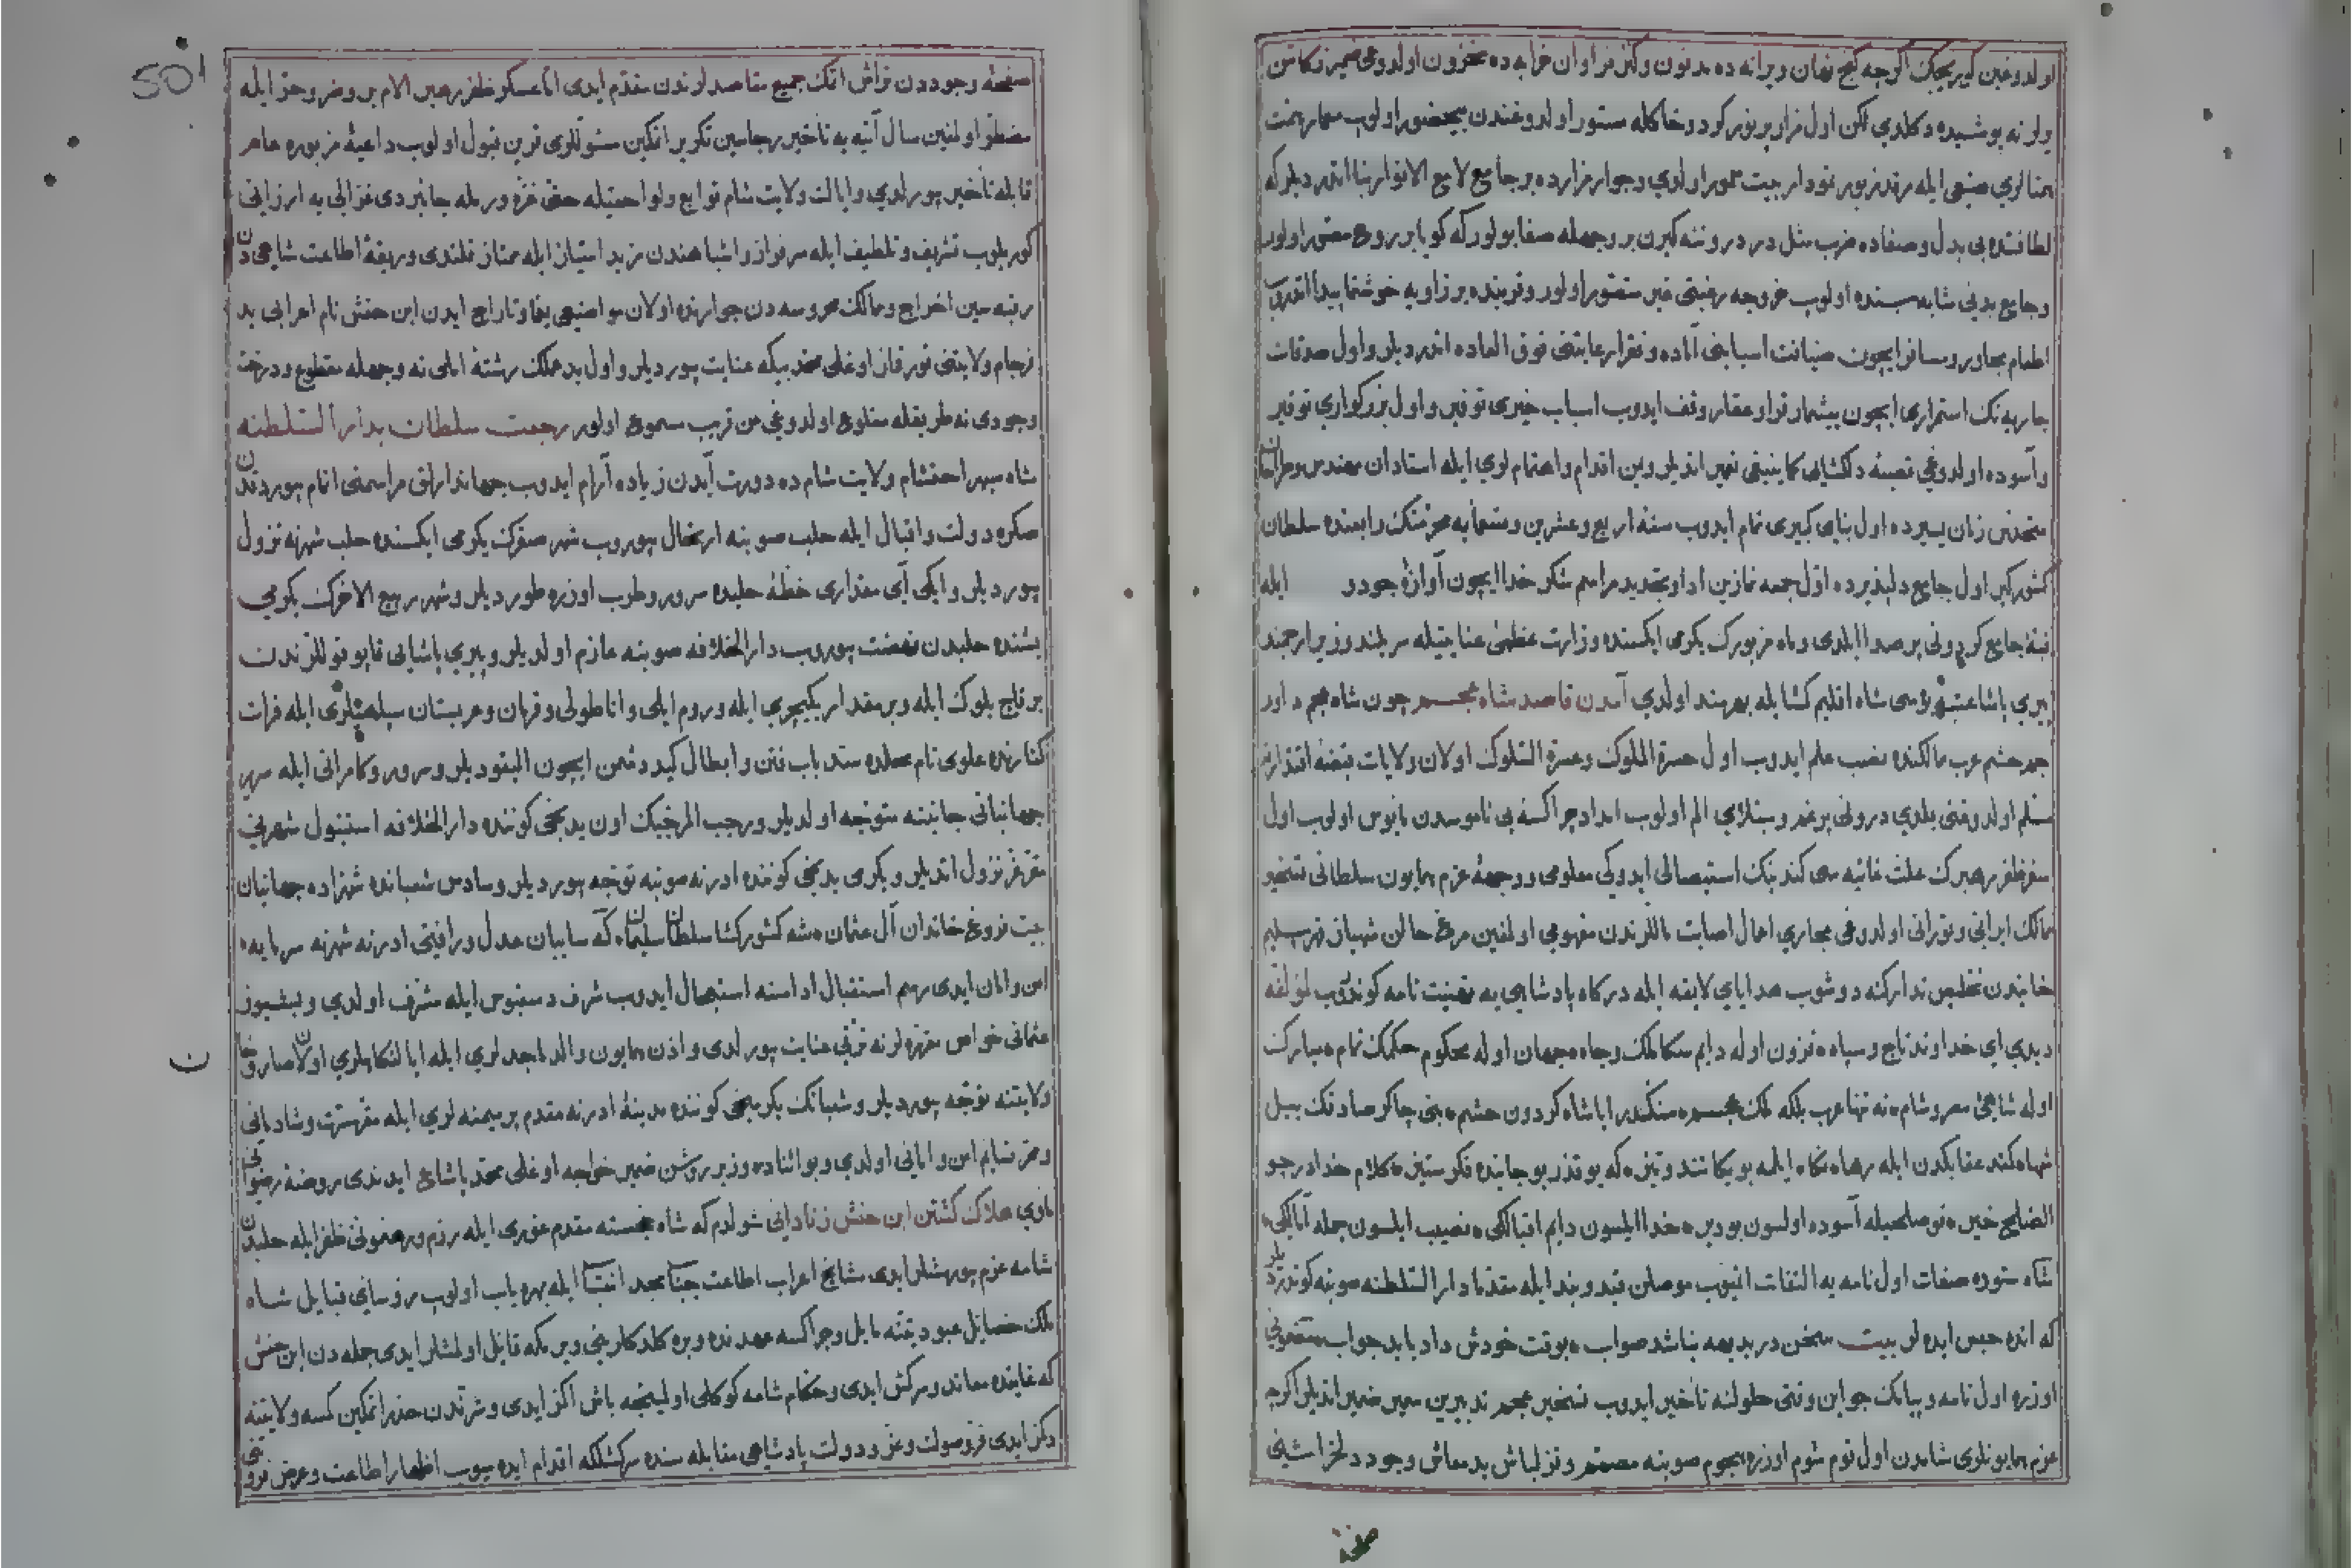 اولدوغین کوریجک اکرچه کنج نهان ویرانه ده مدفون وکنز فراوان خرابه ده مخزون اولدوغی
ولرنه پوشیده دکلدی لکن اول مزار پرنور کرد و خاکله مستور اولدوغندن بیحضور اولوب معمار همت
لری صنعی ایله مرقد پرنور نمودار بیت معمور اولدی وجوار مزارده بر جامع لامع الانوار بنا اتدردیلر که
لطافتده بی بدل وصفاده ضرب مثل در دروننه کیرن بر وجهله صفا بولور که کویا بر روح مصور اولور
وجامع بدنی مشابه سنده اولوب خروجه رغبتی غیر متصور اولور وقربنده بر زاویه خوشنما پیدا اتدروب
اطعام مجاور ومسافر ایچون ضیافت اسبابنی آماده وفقرا رعایتنی فوق العاده اتدردیلر واول صدقات
جاریه نک استمراری ایچون بیشمار قرا وعقار وقف ایدوب اسباب خیری توفیر واول بزرکواری توقیر
وآسوده اولدوغی قصبۀ دلکشای کما ینبغی تعمیر اتدیلر وین اقدام واهتمام لری ایله استادان مهندس
زمان یسیرده اول بنای کبیری تمام ایدوب سنۀ اربع وعشرین وتسعمایه محرمنک رابعنده سلطان
کشورکیر اول جامع دلپذیرده اول جمعه نمازین ادا وتجدید مراسم شکر خدا ایچون آوازۀ جود و ایله
قبۀ جامع کردونی پر صدا ایلدی وماه مزبورک یکرمی ایکسنده وزارت عظمی عنایتیله سربلند وزیر ارجمند
پیری پاشا عتبه بوسی شاه اقلیم کشایله بهرمند اولدی آمدن قاصد شاه عجم چون شاه عجم داور
جم حشم عرب ممالکنده نصب علم ایدوب اول حسرة الملوک وعسرة السلوک اولان ولایات قبضۀ اقتدارنه
مسلم اولدوغنی بلدی درونی پر غم ومبتلای الم اولوب امداد چراکسۀ بی ناموسدن مأیوس اولوب اول
سفر ظفر رهبرک علت غائیه سی کندنک استیصالی ایدوکی معلومی ووجهۀ عزم همایون سلطانی تسخیر
ممالک ایرانی وتورانی اولدوغی مجاری احوال اصابت ماللرندن مفهومی اولمغین مرغ حالن شهباز قهر سلیم
خانیدن تخلیص تدارکنه دوشوب هدایای لایقه ایله درکاه پادشاهی یه تهنیت نامه کوندروب لمؤلفه
دیدی ای خداوند تاج وسپاه ه فزون اوله دایم سکا ملک وجاه ه جهان اوله محکوم حکمک تمام ه مبارک
اوله شاهئ مصر وشام ه نه تنها عرب بلکه ملک عجم ه سنکدر ایا شاه کردون حشم ه بنی چاکر صادقک بیل
شها ه کند عقابکدن ایله رها ه نکاه ایلمه بو یکا تند وتیز ه که یوقدر بو جانبده فکر ستیز ه کلام خدادر چو
الصلح خیر ه نو صلحیله آسوده اولسون بو دیر ه خدا ایلسون دایم اقبالکی ه نصیب ایلسون جمله آمالکی ه
شاه ستوده صفات اول نامه یه التفات اتمیوب موصلن قید وبند ایله مقدما دار السلطنه صوبنه کوندردیلر
که انده حبس ایده لر بیت سخن در بدیهه نباشد صواب ه بوقت خودش داد باید جواب مضمونی
اوزره اول نامه وپیامک جوابن وقتی حلولنه تأخیر ایدوب تسخیر عجم تدبیرین سمیر ضمیر اتدیلر اکرچه
عزم همایونلری شامدن اول قوم شوم اوزره هجوم صوبنه مصمم وقزلباش بد معاش وجود دلخراشینی
501
صفحۀ وجوددن تراش اتمک جمیع مقاصدلرندن مقدم ایدی اما عسکر ظفر رهبر الام بر وضر وحر ایله
مضطر اولمغین سال آتیه یه تأخیر رجاسین تکریر اتمکین مسئوللری قرین قبول اولوب داعیۀ مزبوره عام
قابله تأخیر بیورلدی وایالت ولایت شام توابع ولواحقیله حتی غزه ورمله جانبردی غزالی یه ارزانی
کوریلوب تشریف وتلطیف ایله سرفراز واشباهندن مزید امتیاز ایله ممتاز قلندی وربقۀ اطاعت شاهیدن
رقبه سین اخراج وممالک محروسه دن جوارنده اولان مواضعی یغما وتاراج ایدن ابن حنش نام اعرابی بد
فرجام ولایتنی تورقان اوغلی محمد بیکه عنایت بیوردیلر واول بد عملک رشتۀ املی نه وجهله مقطوع ودرخت
وجودی نه طریقله مقلوع اولدوغی عن قریب مسموع اولور رجعت سلطان بدار السلطنه
شاه سپهر احتشام ولایت شام ده دورت آیدن زیاده آرام ایدوب جهاندارلق مراسمنی اتمام بیوردقدن
صکره دولت واقبال ایله حلب صوبنه ارتحال بیوروب شهر صفرک یکرمی ایکسنده حلب شهرنه نزول
بیوردیلر وایکی آی مقداری خطۀ حلبده سرور وطرب اوزره طوردیلر وشهر ربیع الاخرک یکرمی
بشنده حلبدن نهضت بیوروب دار الخلافه صوبنه عازم اولدیلر وپیری پاشایی قاپو قوللرندن
بر قاچ بلوک ایله وبر مقدار یکیچری ایله وروم ایلی واناطولی وقرمان وعربستان سپاهیلری ایله فرات
کنارنده علوی نام محلده سد باب فتن وابطال کید دشمن ایچون الیقودیلر وسرور وکامرانی ایله سریر
جهانبانی جانبنه متوجه اولدیلر ورجب المرجبک اون یدنجی کوننده دار الخلافه استنبول شهرینی
مقر عز نزول اتدیلر ویکرمی یدنجی کوننده ادرنه صوبنه توجه بیوردیلر وسادس شعبانده شهزاده جهانیان
فروغ خاندان آل عثمان ه شه کشور کشا سلطان سلیمان ه که سایبان عدل ورافتی ادرنه شهرنه سرمایه ه
امن وامان ایدی رسم استقبال اداسنه استعجال ایدوب شرف دستبوس ایله مشرف اولدی وبشیوز
عثمانی خواص مقرره لرنه ترقی عنایت بیورلدی واذن همایون والد ماجدلری ایله ایالتکاهلری اولان صاروخان
ولایتنه توجه بیوردیلر وشعبانک یکرمنجی کوننده مدینۀ ادرنه مقدم پر میمنه لری ایله مقر مسرت وشادمانی
ومقر نسایم امن وامانی اولدی وبو اثناده وزیر روشن ضمیر خواجه اوغلی محمد پاشا ارجعی ندی روضۀ رضوانی
ماوی هلاک کشتن ابن حنش زنادانی شولدم که شاه خجسته مقدم غوری ایله رزم ورهنمونی ظفر ایله حلبدن
شامه عزم بیورمشلر ایدی مشایخ اعراب اطاعت جناب مجد انتساب ایله بهره یاب اولوب رؤسای قبایل شاه
ملک خصایل عبودیتنه مایل وچراکسه عهدنده ویره کلدکلرینی ویرمکه قایل اولمشلر ایدی جمله دن ابن حنش
که غایتده معاند وسرکش ایدی وحکام شامه کوکلی اولیجنه باش اکمز ایدی وشرندن حذر اتمکین کسه ولایتنه
دکمز ایدی فر وصولت وعز ودولت پادشاهی مقابله سنده سرکشلکه اقدام ایده میوب اظهار اطاعت وعرض